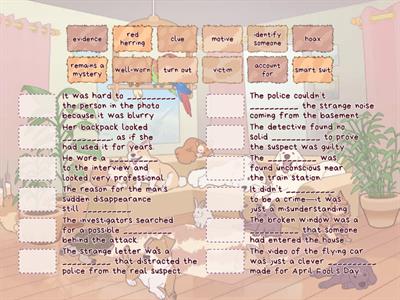 evidence
red
herring
clue
motive
identify
someone
hoax
remains a
mystery
well-worn
turn out
victim
account
for
smart suit
It was hard to __________
the person in the photo
because it was blurry
Her backpack looked
__________, as if she
had used it for years.
He wore a __________
to the interview and
looked very professional
The reason for the man's
sudden disappearance
still __________
The investigators searched
for a possible __________
behind the attack
The strange letter was a
__________ that distracted the
police from the real suspect
The police couldn't
__________ the strange noise
coming from the basement
The detective found no
solid __________ to prove
the suspect was guilty
The __________ was
found unconscious near
the train station
It didn't __________
to be a crime—it was
just a misunderstanding
The broken window was a
__________ that someone
had entered the house
The video of the flying car
was just a clever __________
made for April Fool's Day